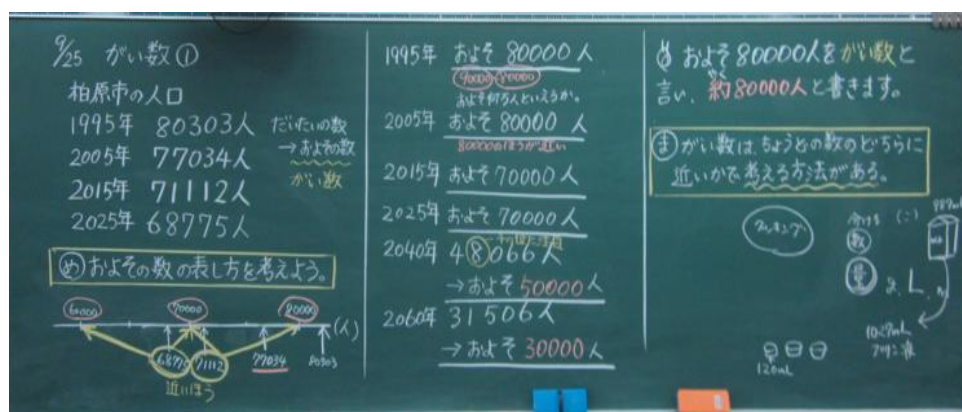 9/25 がい数①
柏原市の人口
1995年 80303人
2005年 77034人
2015年 71112人
2025年 68775人
だいたいの数
→およその数
がい数
め およその数の表し方を考えよう。
60000 70000 80000
(人)
68775 71112 77034 80303
近いほう
1995年 およそ 80000人
90000 80000
およそ何万人といえるか。
2005年 およそ 80000人
80000のほうが近い
2015年 およそ 70000人
2025年 およそ 70000人
2040年 48066人
→およそ 50000人
2060年 31506人
→およそ 30000人
およそ80000人をがい数と
言い、約80000人と書きます。
やく
ま がい数は、ちょうどの数のどちらに
近いかで考える方法がある。
数
量
L
120mL